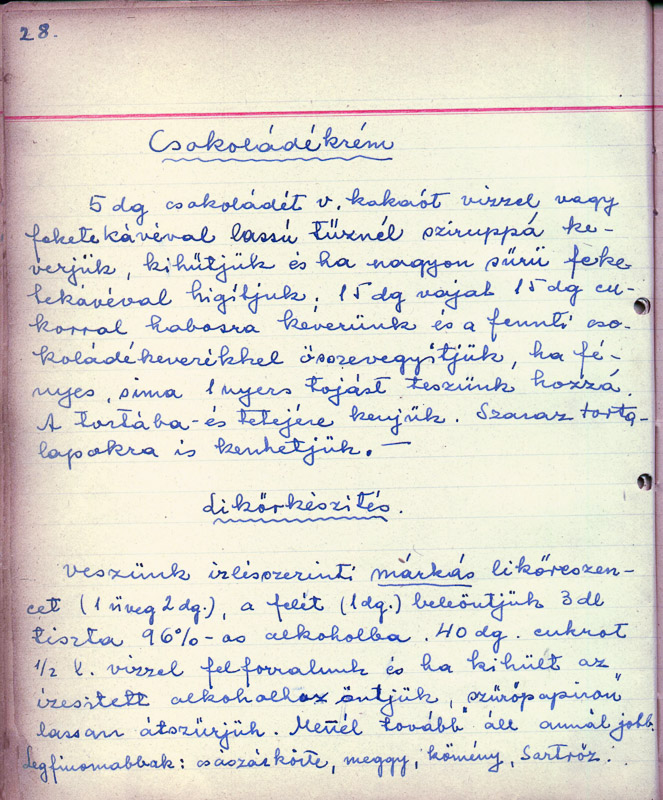 28.
Csokoládékrém
5 dg csokoládét v. kakaót vizzel vagy
feketekávéval lassú tüznél sziruppá ke-
verjük, kihütjük és ha nagyon sürü feke
tekávéval higítjuk. 15 dg vajat 15 dg cu-
korral habosra keverünk és a fennti cso-
koládékeverékkel összevegyítjük, ha fé-
nyes, sima 1 nyers tojást teszünk hozzá.
A tortába-és tetejére kenjük. Szaraz torta-
lapokra is kenhetjük. —
Likőrkészités.
Veszünk izlésszerinti márkás likőreszen-
cet (1 üveg 2 dg.), a felét (1dg.) beleöntjük 3 dl
tiszta 96%-os alkoholba. 40 dg. cukrot
1/2 l. vizzel felforralunk és ha kihült az
izesitett alkoholhoz öntjük, "szürőpapiron"
lassan átszürjük. Menél tovább áll annál jobb.
Legfinomabbak: császárkörte, meggy, kömény, Sartröz.